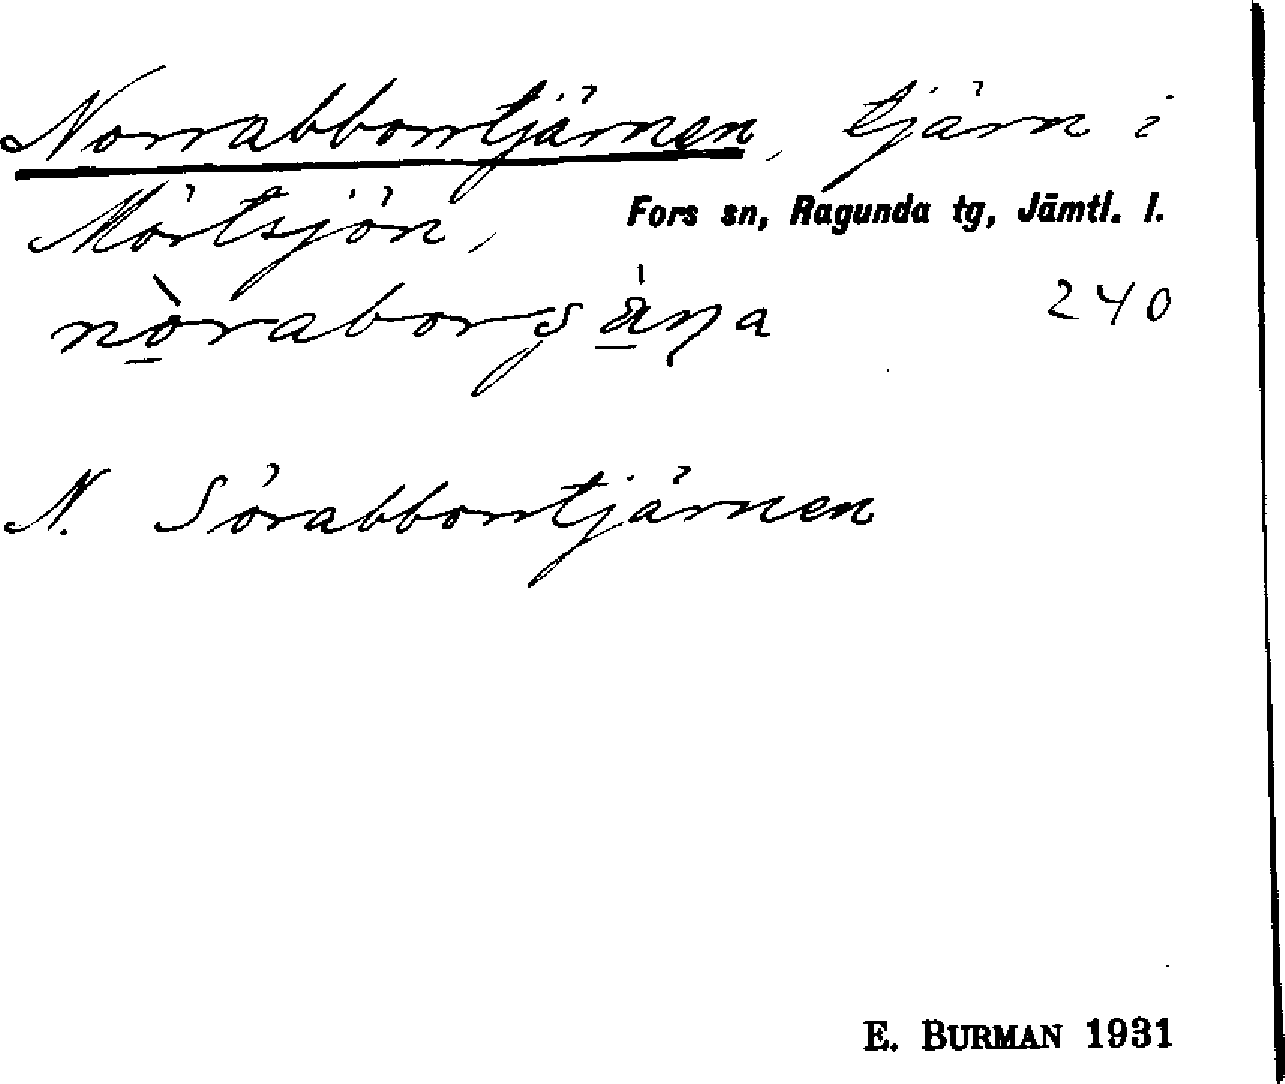 Norrabborrtjärnen, tjärn i
Mörtsjön, Fors sn, Ragunda tg, Jämtl. l.
240
N. Sörabborrtjärnen
E. BURMAN 1931